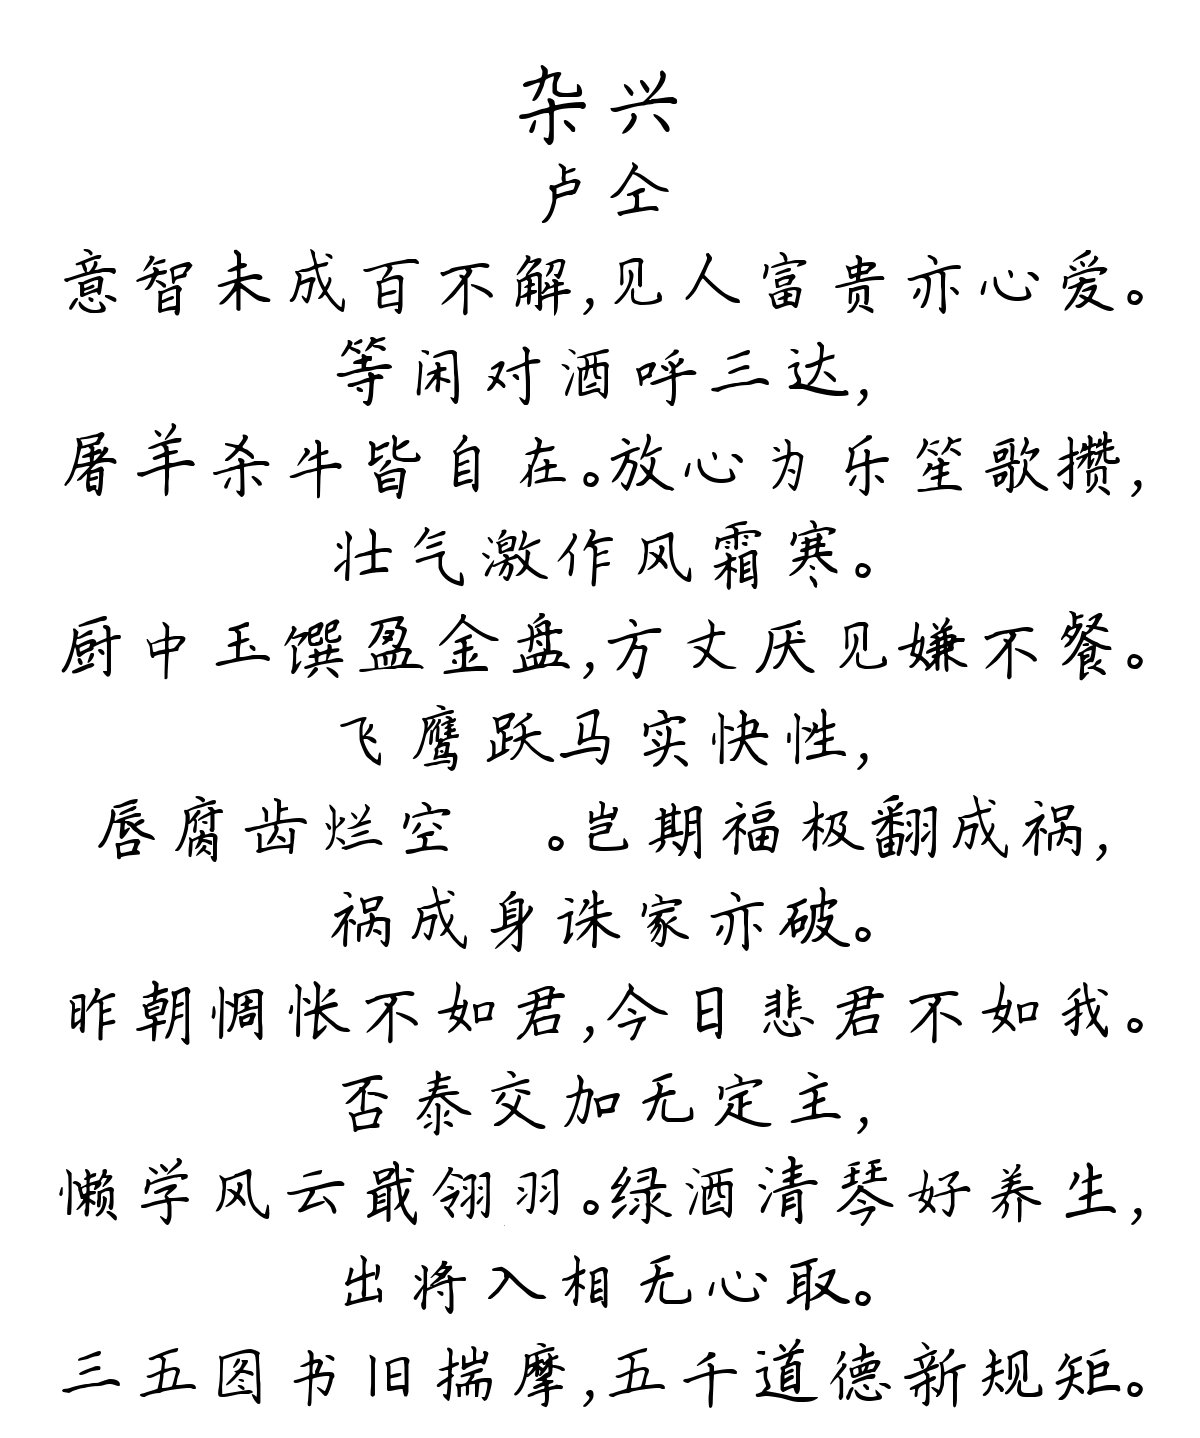 杂兴
卢仝
意智未成百不解,见人富贵亦心爱。
等闲对酒呼三达,
屠羊杀牛皆自在。放心为乐笙歌攒,
壮气激作风霜寒。
厨中玉馔盈金盘,方丈厌见嫌不餐。
飞鹰跃马实快性,
唇腐齿烂空　。岂期福极翻成祸,
祸成身诛家亦破。
昨朝惆怅不如君,今日悲君不如我。
否泰交加无定主,
懒学风云戢翎羽。绿酒清琴好养生,
出将入相无心取。
三五图书旧揣摩,五千道德新规矩。